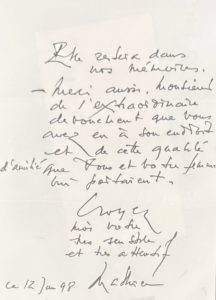 Elle restera dans
nos mémoires.
- Merci aussi, Monsieur
de l'extraordinaire
dévouement que vous
avez eu à son endroit
et de cette qualité
d'amitié que Vous et votre femme
lui portaient.
Croyez
moi votre
très sensible
et très attentif
ce 12 Jan 98